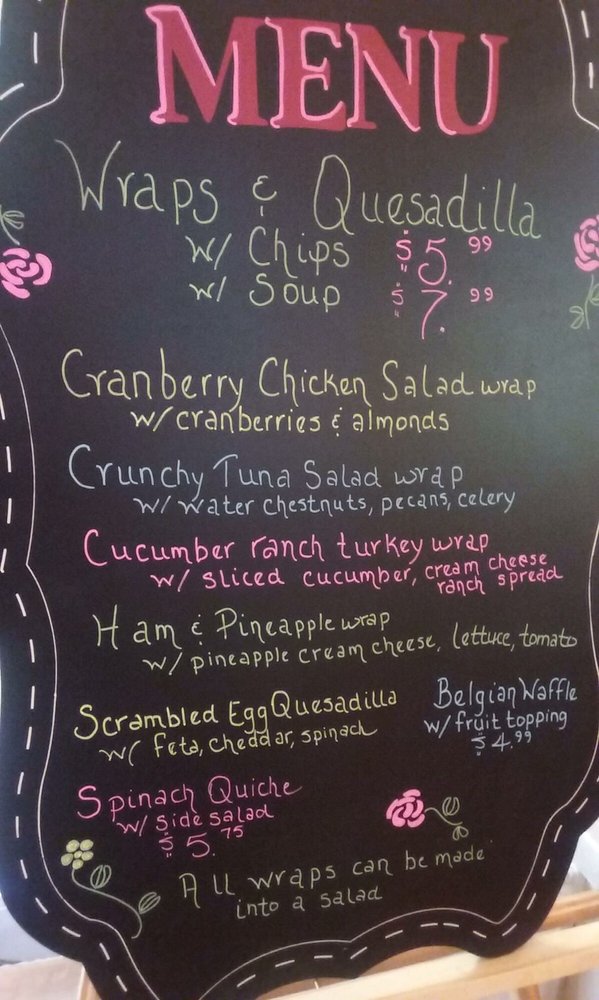 MENU
Wraps & Quesadilla
w/ Chips $5.99
w/ Soup $7.99
Cranberry Chicken Salad wrap
w/ cranberries & almonds
Crunchy Tuna Salad wrap
w/ water chestnuts, pecans, celery
Cucumber ranch turkey wrap
w/ sliced cucumber, cream cheese
ranch spread
Ham & Pineapple wrap
w/ pineapple cream cheese, lettuce, tomato
Scrambled Egg Quesadilla
w/ feta, cheddar, spinach
Belgian Waffle
w/ fruit topping
$4.99
Spinach Quiche
w/ side salad
$5.75
All wraps can be made
into a salad